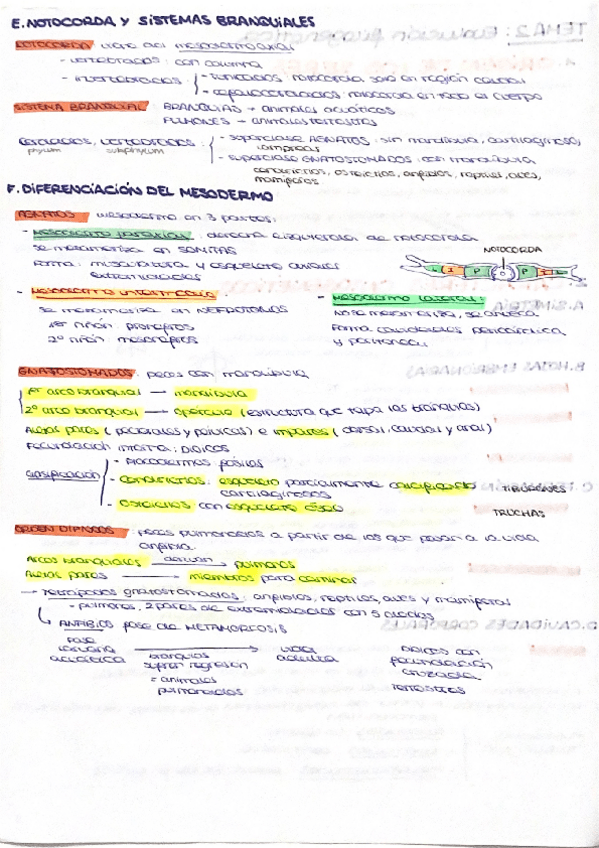 E. NOTOCORDA Y SISTEMAS BRANQUIALES
NOTOCORDA: viene del mesodermo axial
- vertebrados: con columna
- invertebrados: - tunicados: notocorda solo en región caudal
- cefalocordados: notocorda en todo el cuerpo
SISTEMA BRANQUIAL: BRANQUIAS → animales acuáticos
PULMONES → animales terrestres
Cordados, vertebrados: - superclase AGNATOS: sin mandíbula, cartilaginoso,
phylum subphylum lampreas
- superclase GNATOSTOMADOS: con mandíbula
condrictios, osteictios, anfibios, reptiles, aves,
mamíferos.
F. DIFERENCIACIÓN DEL MESODERMO
AGNATOS mesodermo en 3 partes:
- Mesodermo paraxial: derecha e izquierda de notocorda
se metameriza en SOMITAS
forma: musculatura y esqueleto axiales
extremidades
NOTOCORDA
L I P P I L
- Mesodermo intermedio:
se metameriza en NEFROTOMOS
1er riñón: pronefros
2º riñón: mesonefros
- Mesodermo lateral:
No se metameriza, se ahueca
Forma cavidades pericárdica
y peritoneal
GNATOSTOMADOS: peces con mandíbula
1er arco branquial — mandíbula
2º arco branquial — opérculo (estructura que tapa las branquias)
Aletas pares (pectorales y pélvicas) e impares (dorsal, caudal y anal)
Fecundación interna: dioicos
Clasificación - Placodermos fósiles
- Condrictios: esqueleto parcialmente calcificado TIBURONES
cartilaginosos
- Osteictios con esqueleto óseo TRUCHAS
ORIGEN DIPNOOS: peces pulmonados a partir de los que pasan a la vida
anfibia.
Arcos branquiales derivan → pulmones
Aletas pares → miembros para caminar
→ Tetrápodos gnatostomados: anfibios, reptiles, aves y mamíferos
- pulmones, 2 pares de extremidades con 5 dedos
↳ ANFIBIOS fase de METAMORFOSIS
Fase larvaria acuática → vida adulta
branquias
sufren regresión
= animales
pulmonados
Dioicos con
fecundación
cruzada
Terrestres